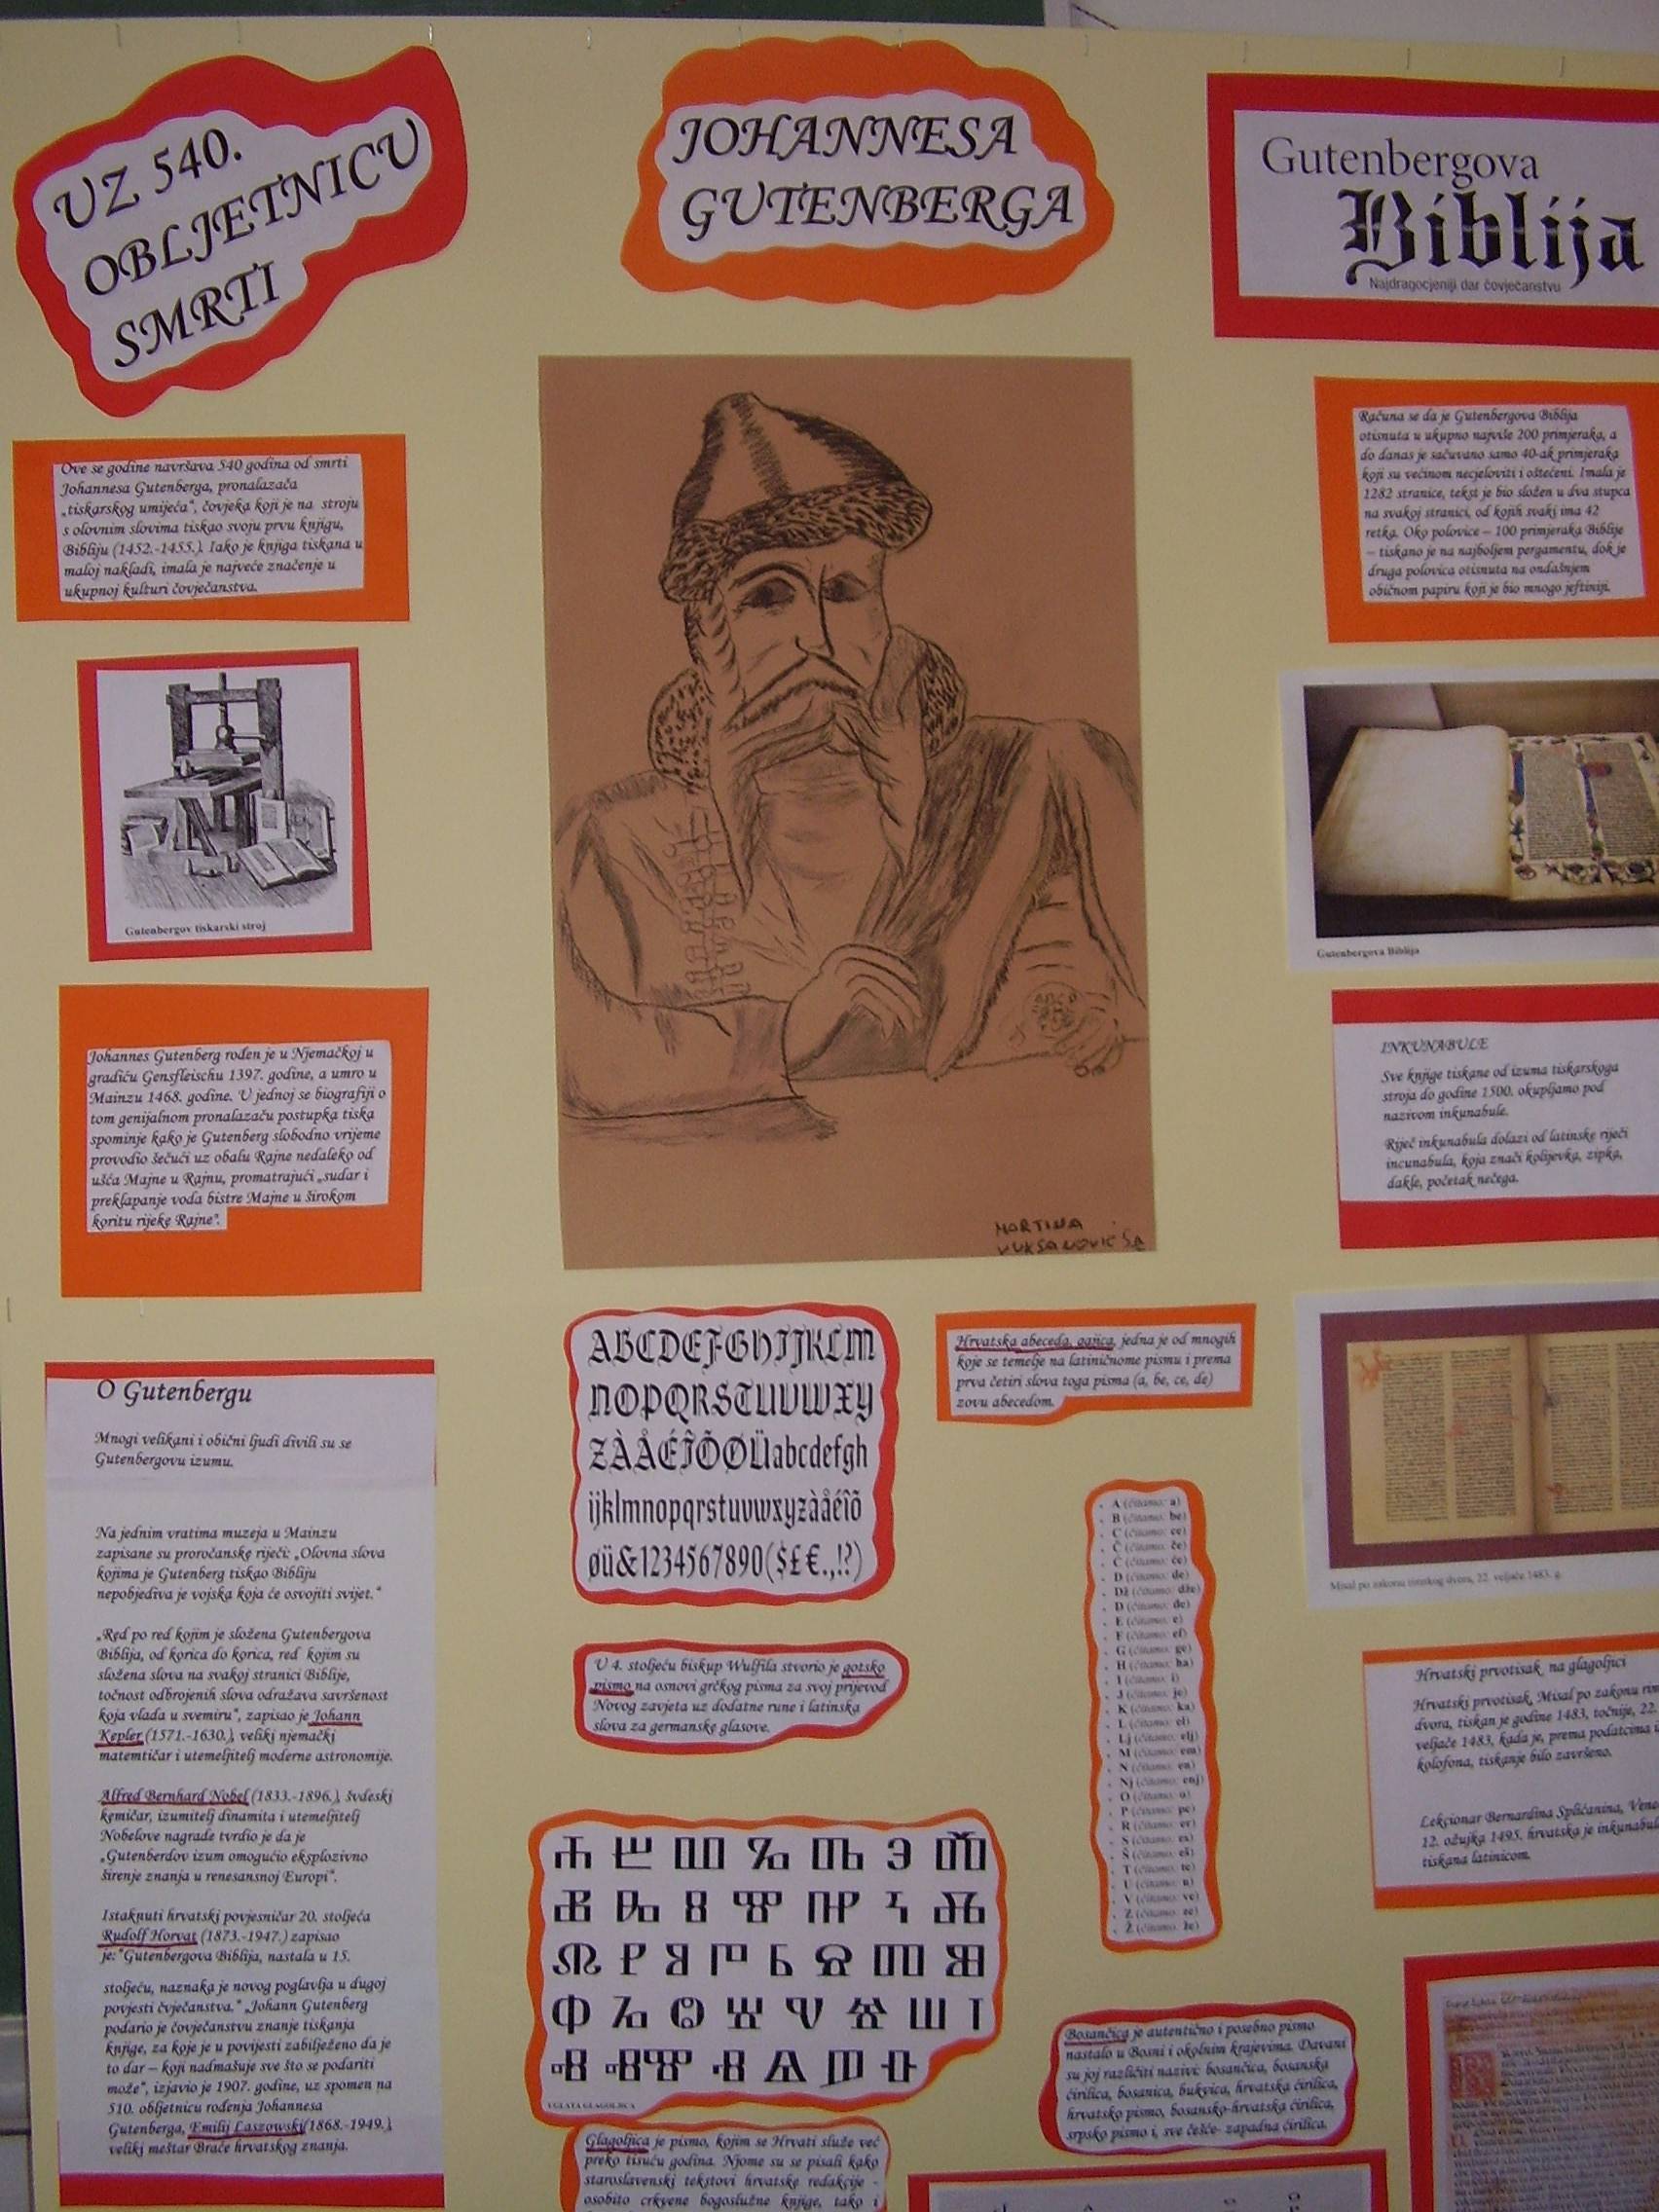 UZ 540.
OBLJETNICU
SMRTI
JOHANNESA
GUTENBERGA
Gutenbergova
Biblija
Najdragocjeniji dar čovječanstvu
Ove se godine navršava 540 godina od smrti
Johannesa Gutenberga, pronalazača
„tiskarskog umijeća“, čovjeka koji je na stroju
s olovnim slovima tiskao svoju prvu knjigu,
Bibliju (1452.-1455.). Iako je knjiga tiskana u
maloj nakladi, imala je najveće značenje u
ukupnoj kulturi čovječanstva.
Gutenbergov tiskarski stroj
Johannes Gutenberg rođen je u Njemačkoj u
gradiću Gensfleischu 1397. godine, a umro u
Mainzu 1468. godine. U jednoj se biografiji o
tom genijalnom pronalazaču postupka tiska
spominje kako je Gutenberg slobodno vrijeme
provodio šečući uz obalu Rajne nedaleko od
ušća Majne u Rajnu, promatrajući „sudar i
preklapanje voda bistre Majne u širokom
koritu rijeke Rajne“.
O Gutenbergu
Mnogi velikani i obični ljudi divili su se
Gutenbergovu izumu.
Na jednim vratima muzeja u Mainzu
zapisane su proročanske riječi: „Olovna slova
kojima je Gutenberg tiskao Bibliju
nepobjediva je vojska koja će osvojiti svijet.“
„Red po red kojim je složena Gutenbergova
Biblija, od korica do korica, red kojim su
složena slova na svakoj stranici Biblije,
točnost odbrojenih slova odražava savršenost
koja vlada u svemiru“, zapisao je Johann
Kepler (1571.-1630.), veliki njemački
matemtičar i utemeljitelj moderne astronomije.
Alfred Bernhard Nobel (1833.-1896.), švdeski
kemičar, izumitelj dinamita i utemeljitelj
Nobelove nagrade tvrdio je da je
„Gutenberdov izum omogućio eksplozivno
širenje znanja u renesansnoj Europi“.
Istaknuti hrvatski povjesničar 20. stoljeća
Rudolf Horvat (1873.-1947.) zapisao
je:“Gutenbergova Biblija, nastala u 15.
stoljeću, naznaka je novog poglavlja u dugoj
povjesti čvječanstva.“ „Johann Gutenberg
podario je čovječanstvu znanje tiskanja
knjige, za koje je u povijesti zabilježeno da je
to dar – koji nadmašuje sve što se podariti
može“, izjavio je 1907. godine, uz spomen na
510. obljetnicu rođenja Johannesa
Gutenberga, Emilij Laszowski (1868.-1949.),
veliki meštar Braće hrvatskog znanja.
MARTINA
VUKSANOVIĆ 5.a
ABCDEFGHIJKLM
NOPQRSTUVWXY
ZÀÅÉÎÕØÜabcdefgh
ijklmnopqrstuvwxyzàåéîõ
øü&1234567890($£€.,!?)
U 4. stoljeću biskup Wulfila stvorio je gotsko
pismo na osnovi grčkog pisma za svoj prijevod
Novog zavjeta uz dodatne rune i latinska
slova za germanske glasove.
UGLATA GLAGOLJICA
Glagoljica je pismo, kojim se Hrvati služe već
preko tisuću godina. Njome su se pisali kako
staroslavenski tekstovi hrvatske redakcije -
osobito crkvene bogoslužne knjige, tako i
Hrvatska abeceda, gajica, jedna je od mnogih
koje se temelje na latiničnome pismu i prema
prva četiri slova toga pisma (a, be, ce, de)
zovu abecedom.
A (čitamo: a)
B (čitamo: be)
C (čitamo: ce)
Č (čitamo: če)
Ć (čitamo: će)
D (čitamo: de)
Dž (čitamo: dže)
Đ (čitamo: đe)
E (čitamo: e)
F (čitamo: ef)
G (čitamo: ge)
H (čitamo: ha)
I (čitamo: i)
J (čitamo: je)
K (čitamo: ka)
L (čitamo: el)
Lj (čitamo: elj)
M (čitamo: em)
N (čitamo: en)
Nj (čitamo: enj)
O (čitamo: o)
P (čitamo: pe)
R (čitamo: er)
S (čitamo: es)
Š (čitamo: eš)
T (čitamo: te)
U (čitamo: u)
V (čitamo: ve)
Z (čitamo: ze)
Ž (čitamo: že)
Bosančica je autentično i posebno pismo
nastalo u Bosni i okolnim krajevima. Davani
su joj različiti nazivi: bosančica, bosanska
ćirilica, bosanica, bukvica, hrvatska ćirilica,
hrvatsko pismo, bosansko-hrvatska ćirilica,
srpsko pismo i, sve češće- zapadna ćirilica.
Računa se da je Gutenbergova Biblija
otisnuta u ukupno najviše 200 primjeraka, a
do danas je sačuvano samo 40-ak primjeraka
koji su većinom necjeloviti i oštećeni. Imala je
1282 stranice, tekst je bio složen u dva stupca
na svakoj stranici, od kojih svaki ima 42
retka. Oko polovice – 100 primjeraka Biblije
– tiskano je na najboljem pergamentu, dok je
druga polovica otisnuta na ondašnjem
običnom papiru koji je bio mnogo jeftiniji.
Gutenbergova Biblija
INKUNABULE
Sve knjige tiskane od izuma tiskarskoga
stroja do godine 1500. okupljamo pod
nazivom inkunabule.
Riječ inkunabula dolazi od latinske riječi
incunabula, koja znači kolijevka, zipka,
dakle, početak nečega.
Misal po zakonu rimskog dvora, 22. veljače 1483. g.
Hrvatski prvotisak na glagoljici
Hrvatski prvotisak, Misal po zakonu
dvora, tiskan je godine 1483, točnije, 22.
veljače 1483, kada je, prema podatcima
kolofona, tiskanje bilo završeno.
Lekcionar Bernardina Splićanina,
12. ožujka 1495. hrvatska je
tiskana latinicom.